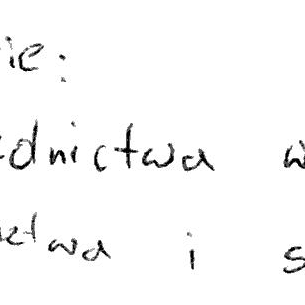 ie:
ednictwa w
ictwa i s